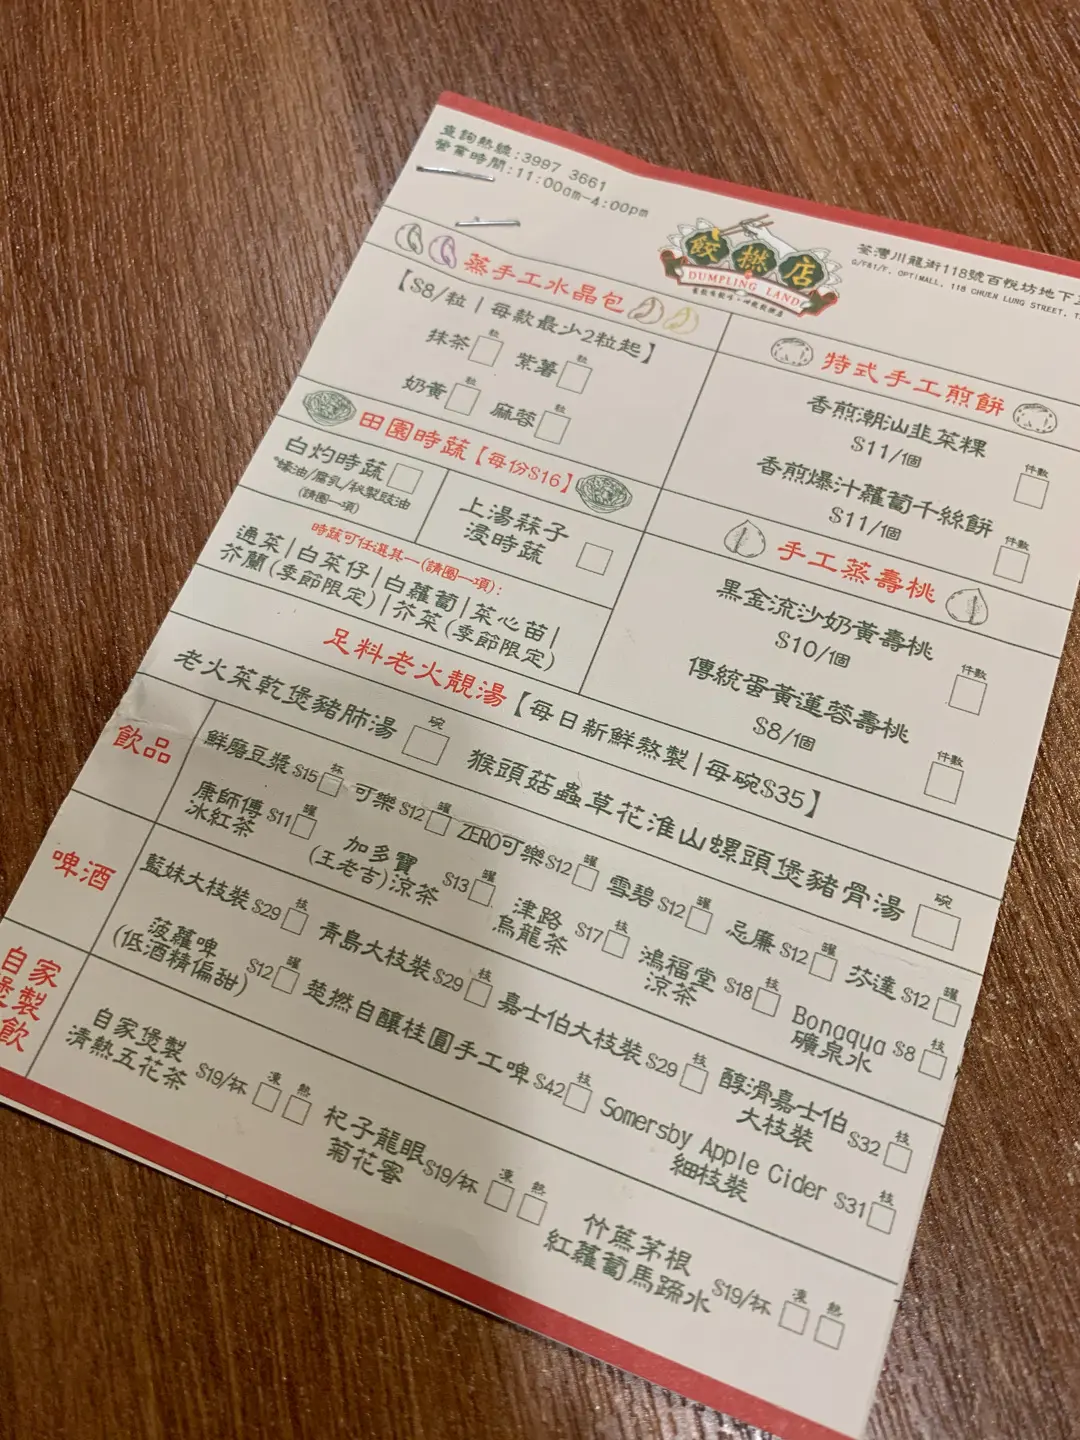 查詢熱線:3997 3661
營業時間:11:00am-4:00pm
餃撚店
DUMPLING LAND
荃灣川龍街118號百悅坊地下
G/F&1/F, OPTIMALL, 118 CHUEN LUNG STREET,
蒸手工水晶包
【$8/粒|每款最少2粒起】
抹茶 粒
紫薯 粒
奶黃 粒
麻蓉 粒
田園時蔬【每份$16】
白灼時蔬
*蠔油/腐乳/秘製豉油
(請圈一項)
上湯蕤子
浸時蔬
時蔬可任選其一(請圈一項):
通菜|白菜仔|白蘿蔔|菜心苗|
芥蘭(季節限定)|芥菜(季節限定)
特式手工煎餅
香煎潮汕韭菜粿
$11/個 件數
香煎爆汁蘿蔔千絲餅
$11/個 件數
手工蒸壽桃
黑金流沙奶黃壽桃
$10/個 件數
傳統蛋黃蓮蓉壽桃
$8/個 件數
足料老火靚湯【每日新鮮熬製|每碗$35】
老火菜乾煲豬肺湯 碗
猴頭菇蟲草花淮山螺頭煲豬骨湯 碗
飲品
鮮磨豆漿 $15 杯
可樂 $12 罐
ZERO可樂 $12 罐
雪碧 $12 罐
忌廉 $12 罐
芬達 $12 罐
康師傅
冰紅茶 $11 罐
加多寶
(王老吉)涼茶 $13 罐
津路
烏龍茶 $17 枝
鴻福堂
涼茶 $18 枝
Bonaqua
礦泉水 $8 枝
啤酒
藍妹大枝裝 $29 枝
青島大枝裝 $29 枝
嘉士伯大枝裝 $29 枝
醇滑嘉士伯
大枝裝 $32 枝
菠蘿啤
(低酒精偏甜) $12 罐
楚撚自釀桂圓手工啤 $42 枝
Somersby Apple Cider
細枝裝 $31 枝
自家
煲製
飲
自家煲製
清熱五花茶 $19/杯 凍 熱
杞子龍眼
菊花蜜 $19/杯 凍 熱
竹蔗茅根
紅蘿蔔馬蹄水 $19/杯 凍 熱